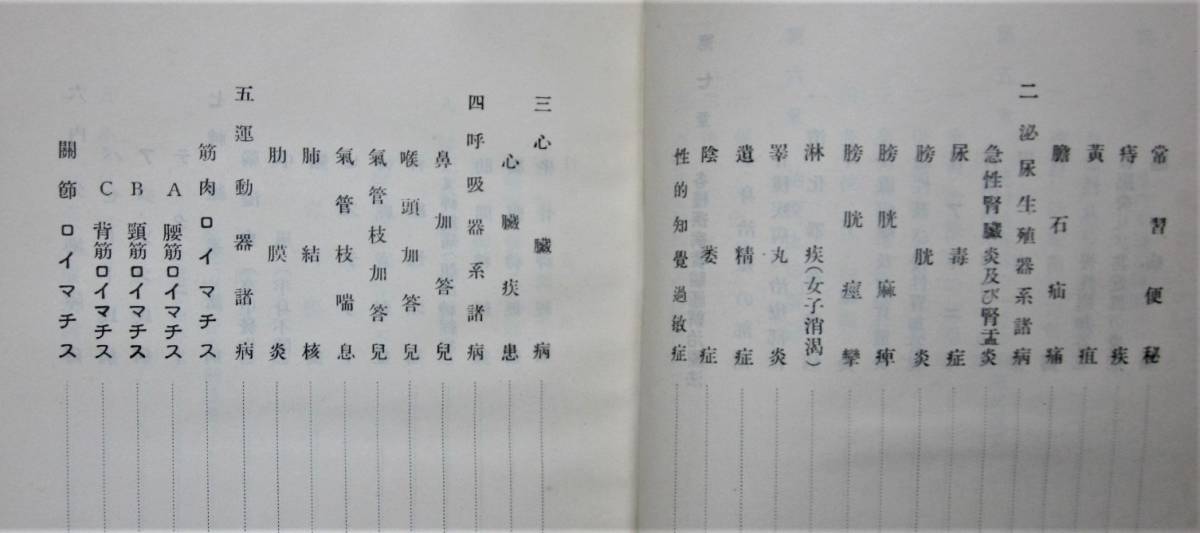 常習便秘
痔疾
黃疸
膽石疝痛
二 泌尿生殖器系諸病
急性腎臟炎及び腎盂炎
尿毒症
膀胱炎
膀胱麻痺
膀胱痙攣
淋疾(女子消渇)
睪丸炎
遺精症
陰萎症
性的知覺過敏症
三 心臟病
心臟疾患
四 呼吸器系諸病
鼻加答兒
喉頭加答兒
氣管枝加答兒
氣管枝喘息
肺結核
肋膜炎
五 運動器諸病
筋肉ロイマチス
A 腰筋ロイマチス
B 頸筋ロイマチス
C 背筋ロイマチス
關節ロイマチス